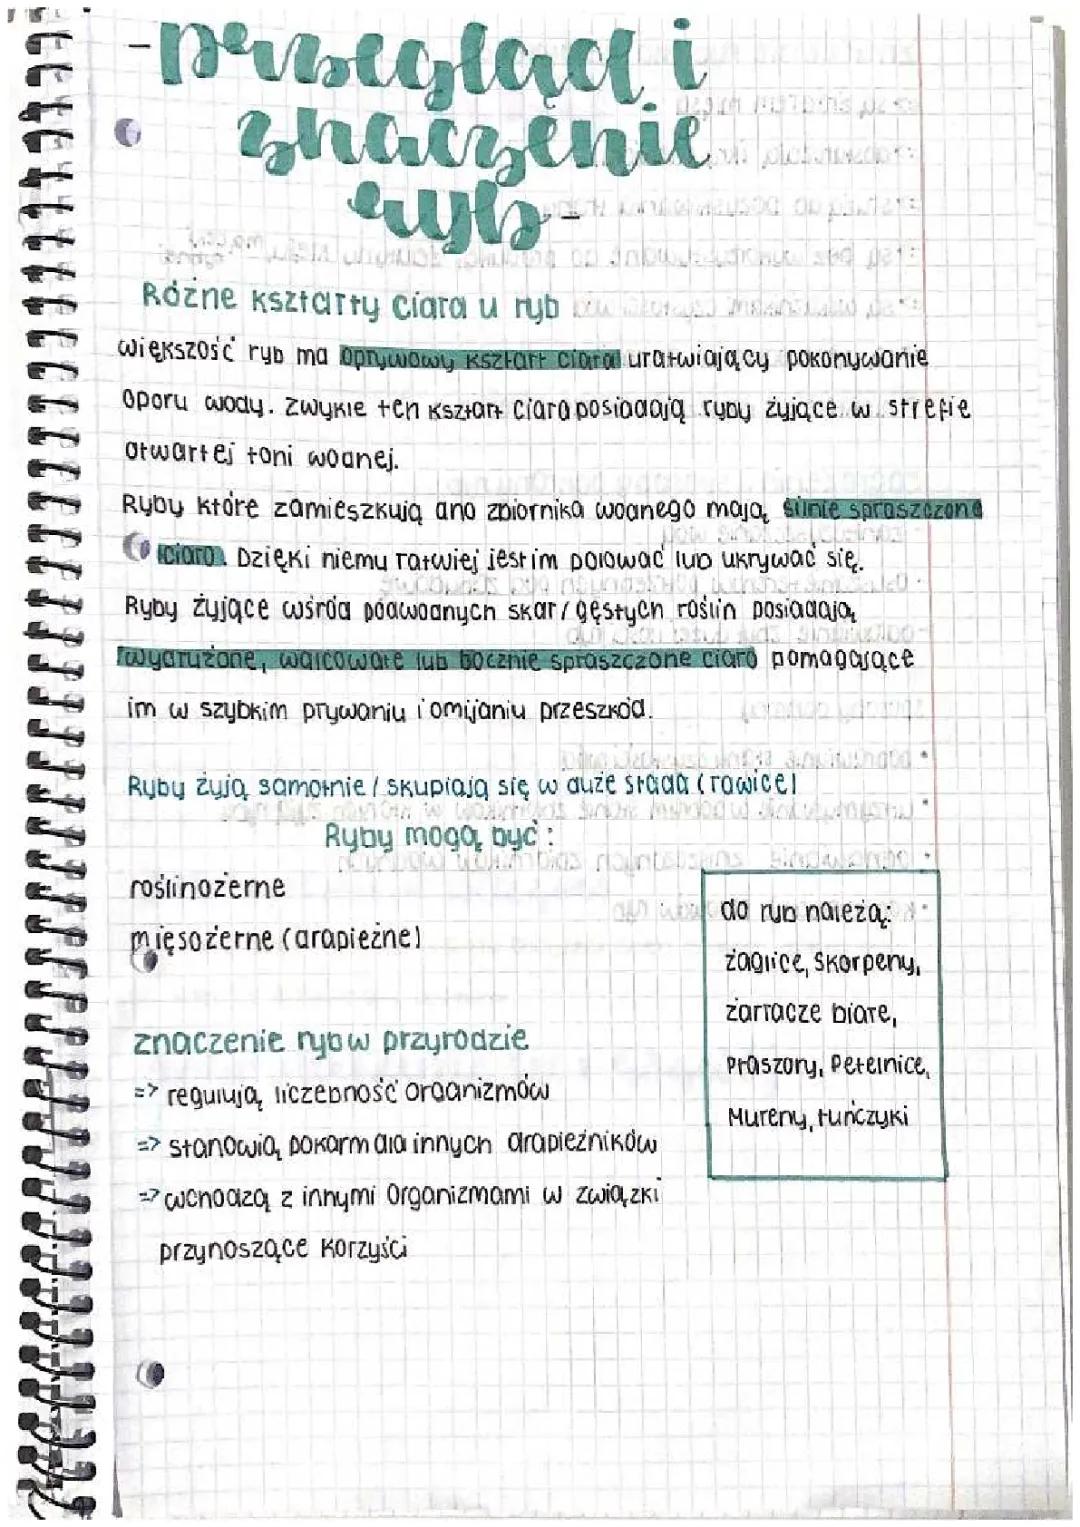 -przegląd i
znaczenie
ryb-
Różne kształty ciała u ryb
większość ryb ma opływowy kształt ciała ułatwiający pokonywanie
oporu wody. Zwykle ten kształt ciała posiadają ryby żyjące w strefie
otwartej toni wodnej.
Ryby które zamieszkują dno zbiornika wodnego mają silnie spłaszczone
ciało. Dzięki niemu łatwiej jest im polować lub ukrywać się.
Ryby żyjące wśród podwodnych skał/gęstych roślin posiadają
wydłużone, walcowate lub bocznie spłaszczone ciało pomagające
im w szybkim pływaniu i omijaniu przeszkód.
Ryby żyją samotnie / skupiają się w duże stada (ławice)
Ryby mogą być:
roślinożerne
mięsożerne (drapieżne)
znaczenie ryb w przyrodzie
=> regulują liczebność organizmów
=> stanowią pokarm dla innych drapieżników
=> wchodzą z innymi organizmami w związki
przynoszące korzyści
do ryb należą:
żaglice, Skorpeny,
żarłacze białe,
Płaszory, Petelnice,
Mureny, tuńczyki